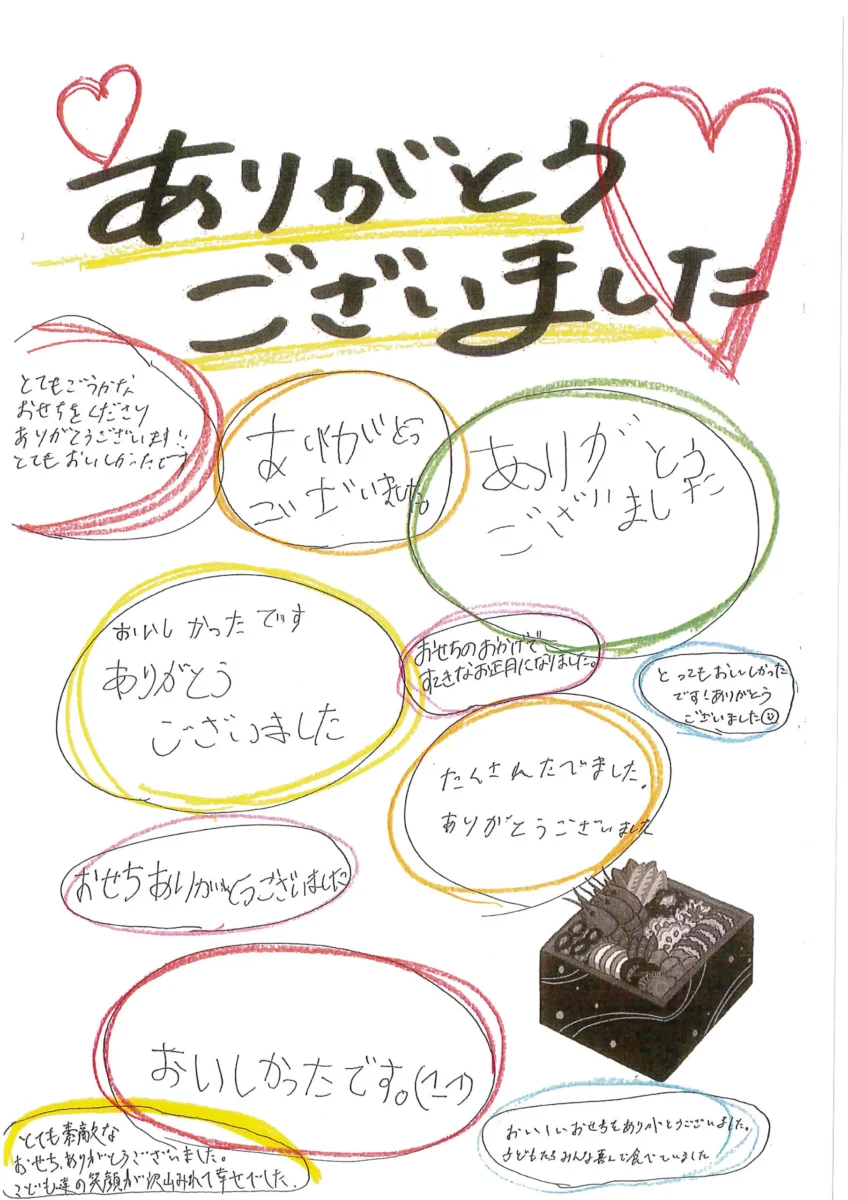 ありがとう
ございました
とてもごうかな
おせちをくださり
ありがとうございます!!
とてもおいしかったです
ありがとう
ございました。
ありがとう
ございました
おいしかったです
ありがとう
ございました
おせちのおかげで
すてきなお正月になりました。
とってもおいしかった
です!ありがとう
ございました
たくさんたべました。
ありがとうございました
おせちありがとうございました
おいしかったです。(^-^)
とても素敵な
おせち、ありがとうございました。
こども達の笑顔が沢山みれて幸せでした。
おいしいおせちをありがとうございました。
子どもたちみんな喜んで食べていました